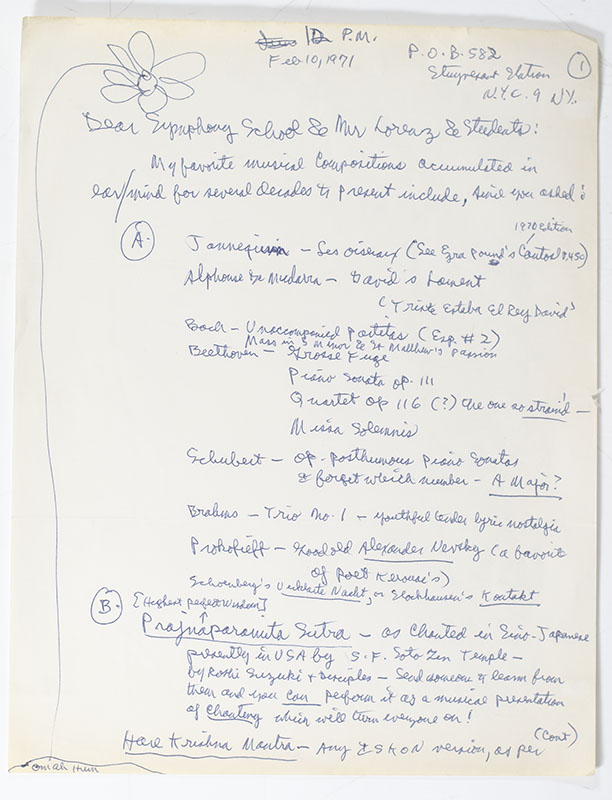 P.M.
Feb 10, 1971
P.O.B. 582
Stuyvesant Station
N.Y.C. 9 N.Y.
1
Dear Symphony School & Mr Lorenz & Students:
My favorite musical compositions accumulated in
ear/mind for several decades to present include, since you asked:
1970 edition
A. Jannequin – Les oiseaux (See Ezra Pound's Cantos p. 450)
Alphonse de Mudarra – David's Lament
("Triste Estaba El Rey David")
Bach – Unaccompanied Partitas (Esp. # 2)
Mass in B Minor & St Matthew's Passion
Beethoven – Grosse Fuge
Piano Sonata op. 111
Quartet op 116 (?) the one so strain'd –
Missa Solemnis
Schubert – op. posthumous piano Sonatas
I forget which number – A Major?
Brahms – Trio No. 1 – youthful tender lyric nostalgia
Prokofieff – Good old Alexander Nevsky (a favorite
of poet Kerouac's)
Schoenberg's Verklarte Nacht, or Stockhausen's Kontakt
B. [Highest perfect Wisdom]
Prajnaparamita Sutra – as Chanted in Sino-Japanese
presently in USA by S.F. Soto Zen Temple –
by Roshi Suzuki & disciples – Send someone to learn from
them and you can perform it as a musical presentation
of Chanting which will turn everyone on!
(Cont)
Hare Krishna Mantra – Any ISKON version, as per